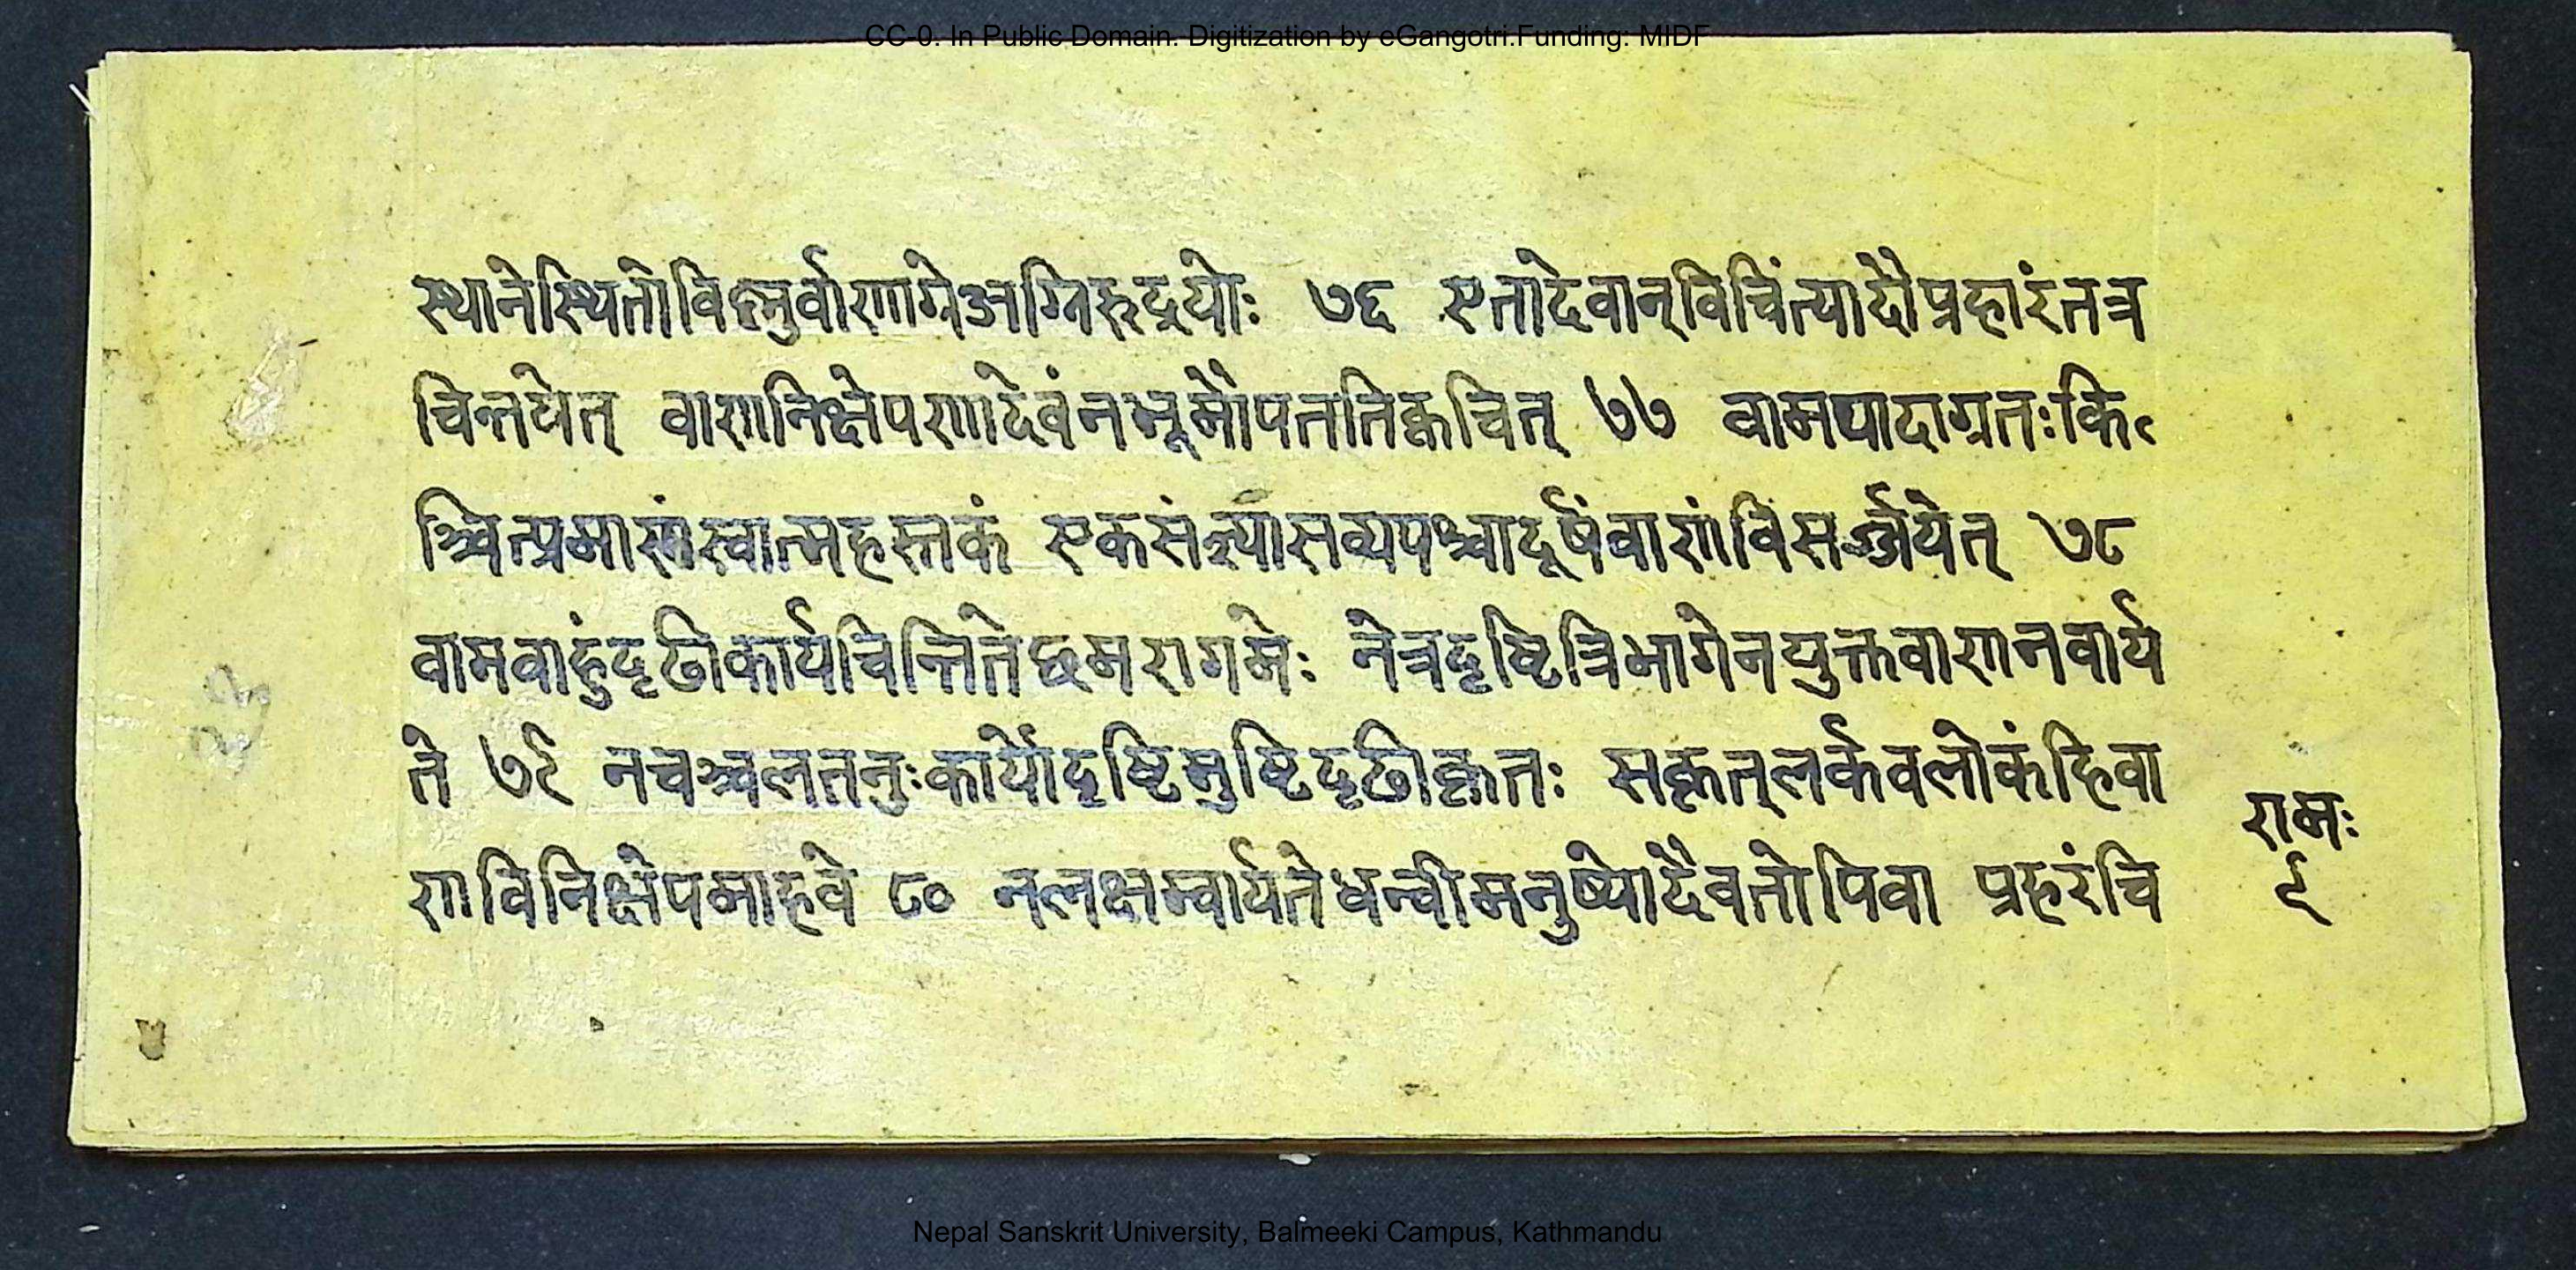 CC-0. In Public Domain. Digitization by eGangotri.Funding: MIDF
स्थानेस्थितोविष्नुर्वाणाग्रेअग्निरुद्रयोः ७६ एतादेवान्विचिंत्यादौप्रहारंतत्र
चिन्तयेत् वाणनिक्षेपणादेवंनभूमौपततिक्वचित् ७७ वामपादाग्रतःकि
ञ्चित्प्रमाणंस्वात्महस्तकं एकसंज्ञ्यासव्यपश्चादूर्षंवाणंविसर्ज्जयेत् ७८
वामवाहुंदृढीकार्यचिन्तितेछमरागमेः नेत्रदृष्टित्रिभागेनयुक्तवाणनवार्य
ते ७९ नचञ्चलतनुःकार्योदृष्टिमुष्टिदृढीकृतः सकृत्लर्कवलोकंहिवा
णविनिक्षेपमाहवे ८० नलक्षम्वार्यतेधन्वीमनुष्योदैवतोपिवा प्रहरंचि
रामः
९
Nepal Sanskrit University, Balmeeki Campus, Kathmandu